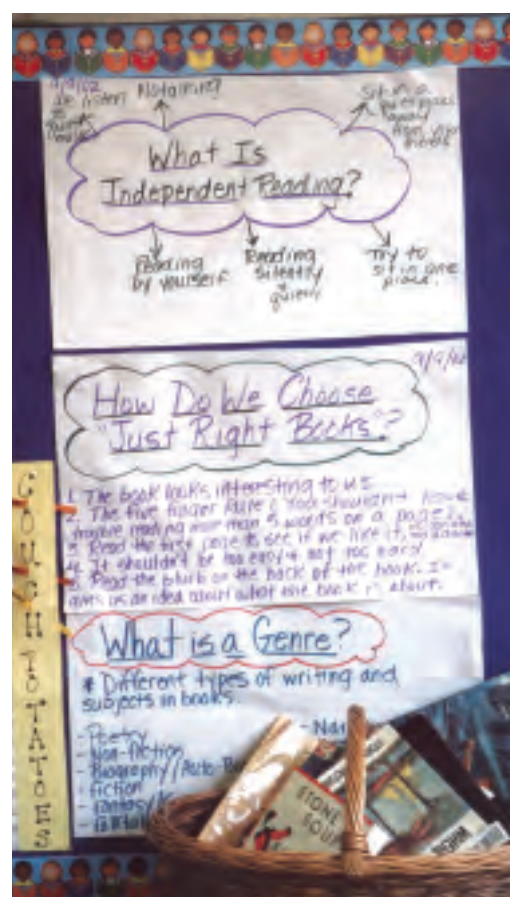 9/9/02
No talking
Sit in a
away
from your
friends
What Is
Independent Reading?
Reading
by yourself
Reading
silently
+
quietly
Try to
sit in one
place.
9/9/02
How Do We Choose
"Just Right Books"?
1. The book looks interesting to us
2. The five finger rule: You shouldn't have
trouble reading more than 5 words on a page.
3. Read the first page to see if we like it,
4. It shouldn't be too easy + not too hard
5. Read the blurb on the back of the book. It
gives us an idea about what the book is about.
What is a Genre?
* Different types of writing and
subjects in books.
- Poetry
- Non-fiction
- Biography/Auto-
- fiction
- fantasy
- Nar
COUCH POTATOES
STONE
SOUP